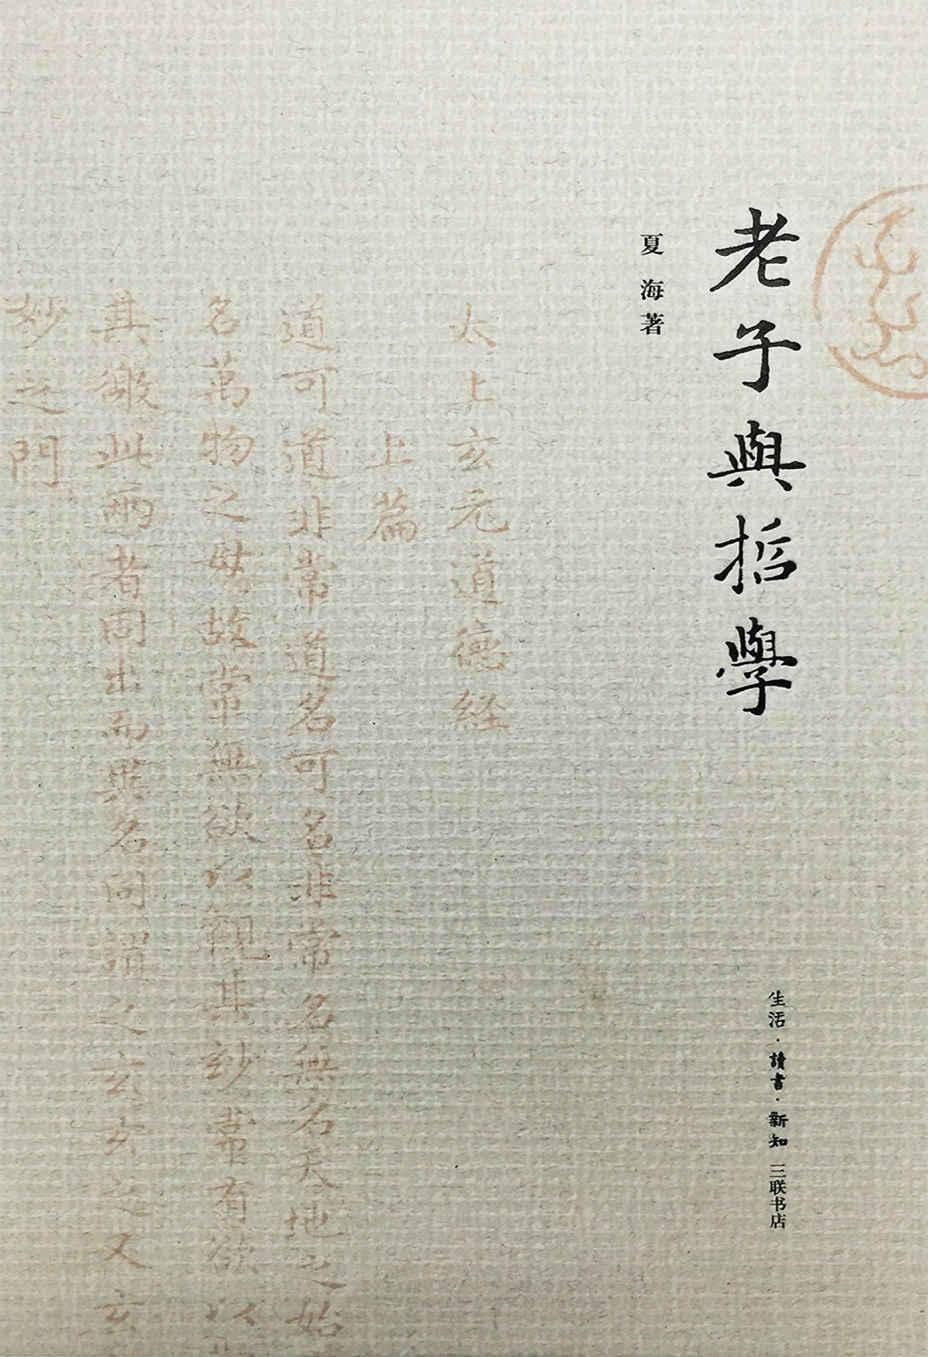 老子與哲學
夏海著
生活·讀書·新知 三联书店
太上玄元道德経
上篇
道可道非常道名可名非常名無名天地之始
名萬物之母故常無欲以觀其玅常有欲以
其徼此兩者同出而異名同謂之玄玄之又玄
妙之門